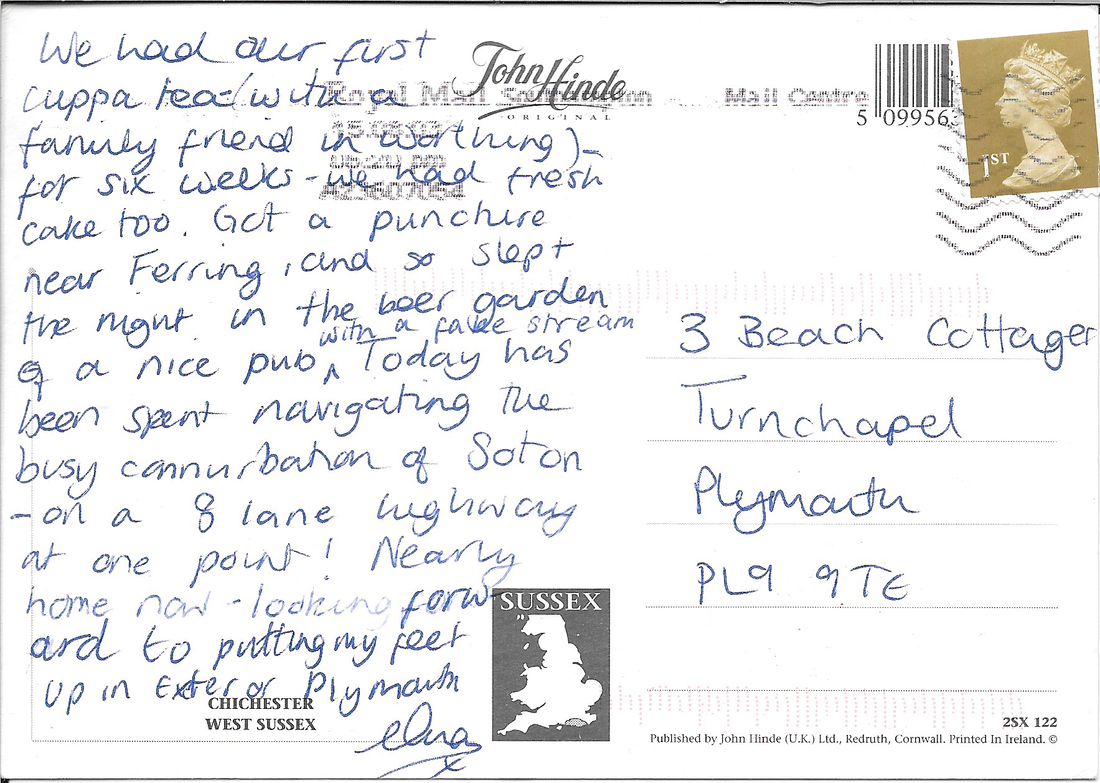 We had our first
cuppa tea (with a
family friend in Worthing) -
for six weeks - we had fresh
cake too. Got a puncture
near Ferring, and so slept
the night in the beer garden
with a fake stream
of a nice pub ^ Today has
been spent navigating the
busy connurbation of Soton
- on a 8 lane highway
at one point! Nearly
home now - looking forw-
ard to putting my feet
up in Exeter or Plymouth
x
John Hinde
ORIGINAL
Royal Mail
Mail Centre
5 09956
1ST
3 Beach Cottages
Turnchapel
Plymouth
PL9 9TE
SUSSEX
CHICHESTER
WEST SUSSEX
2SX 122
Published by John Hinde (U.K.) Ltd., Redruth, Cornwall. Printed In Ireland. ©